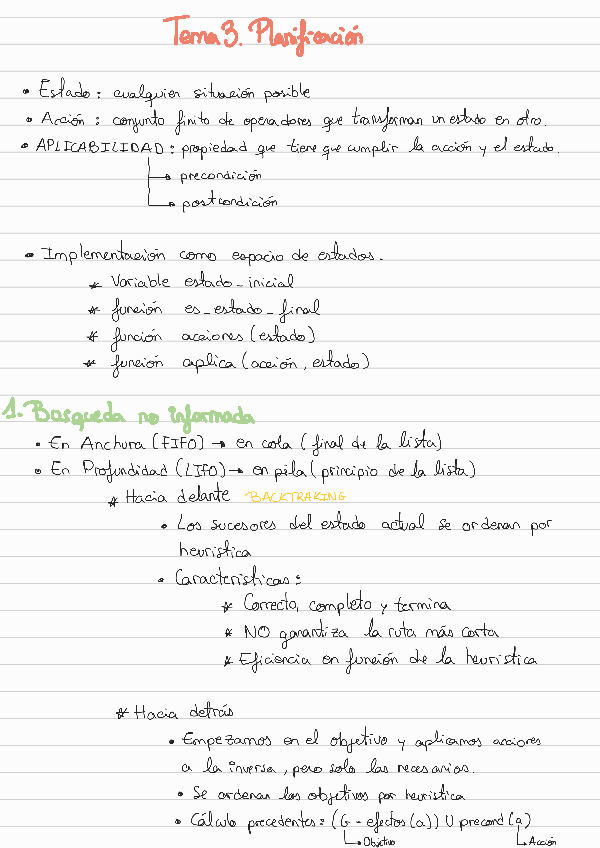 Tema 3. Planificación
• Estado: cualquier situación posible
• Acción: conjunto finito de operadores que transforman un estado en otro.
• APLICABILIDAD: propiedad que tiene que cumplir la acción y el estado.
→ precondición
→ postcondición
• Implementación como espacio de estados.
* Variable estado_inicial
* función es_estado_final
* función acciones (estado)
* función aplica (acción, estado)
1. Búsqueda no informada
• En Anchura (FIFO) → en cola (final de la lista)
• En Profundidad (LIFO) → en pila (principio de la lista)
* Hacia delante BACKTRAKING
• Los sucesores del estado actual se ordenan por
heurística
• Características:
* Correcto, completo y termina
* NO garantiza la ruta más corta
* Eficiencia en función de la heurística
* Hacia detrás
• Empezamos en el objetivo y aplicamos acciones
a la inversa, pero solo las necesarias.
• Se ordenan los objetivos por heurística
• Cálculo precedentes: (G - efectos (a)) U precond (a)
→ Objetivo → Acción